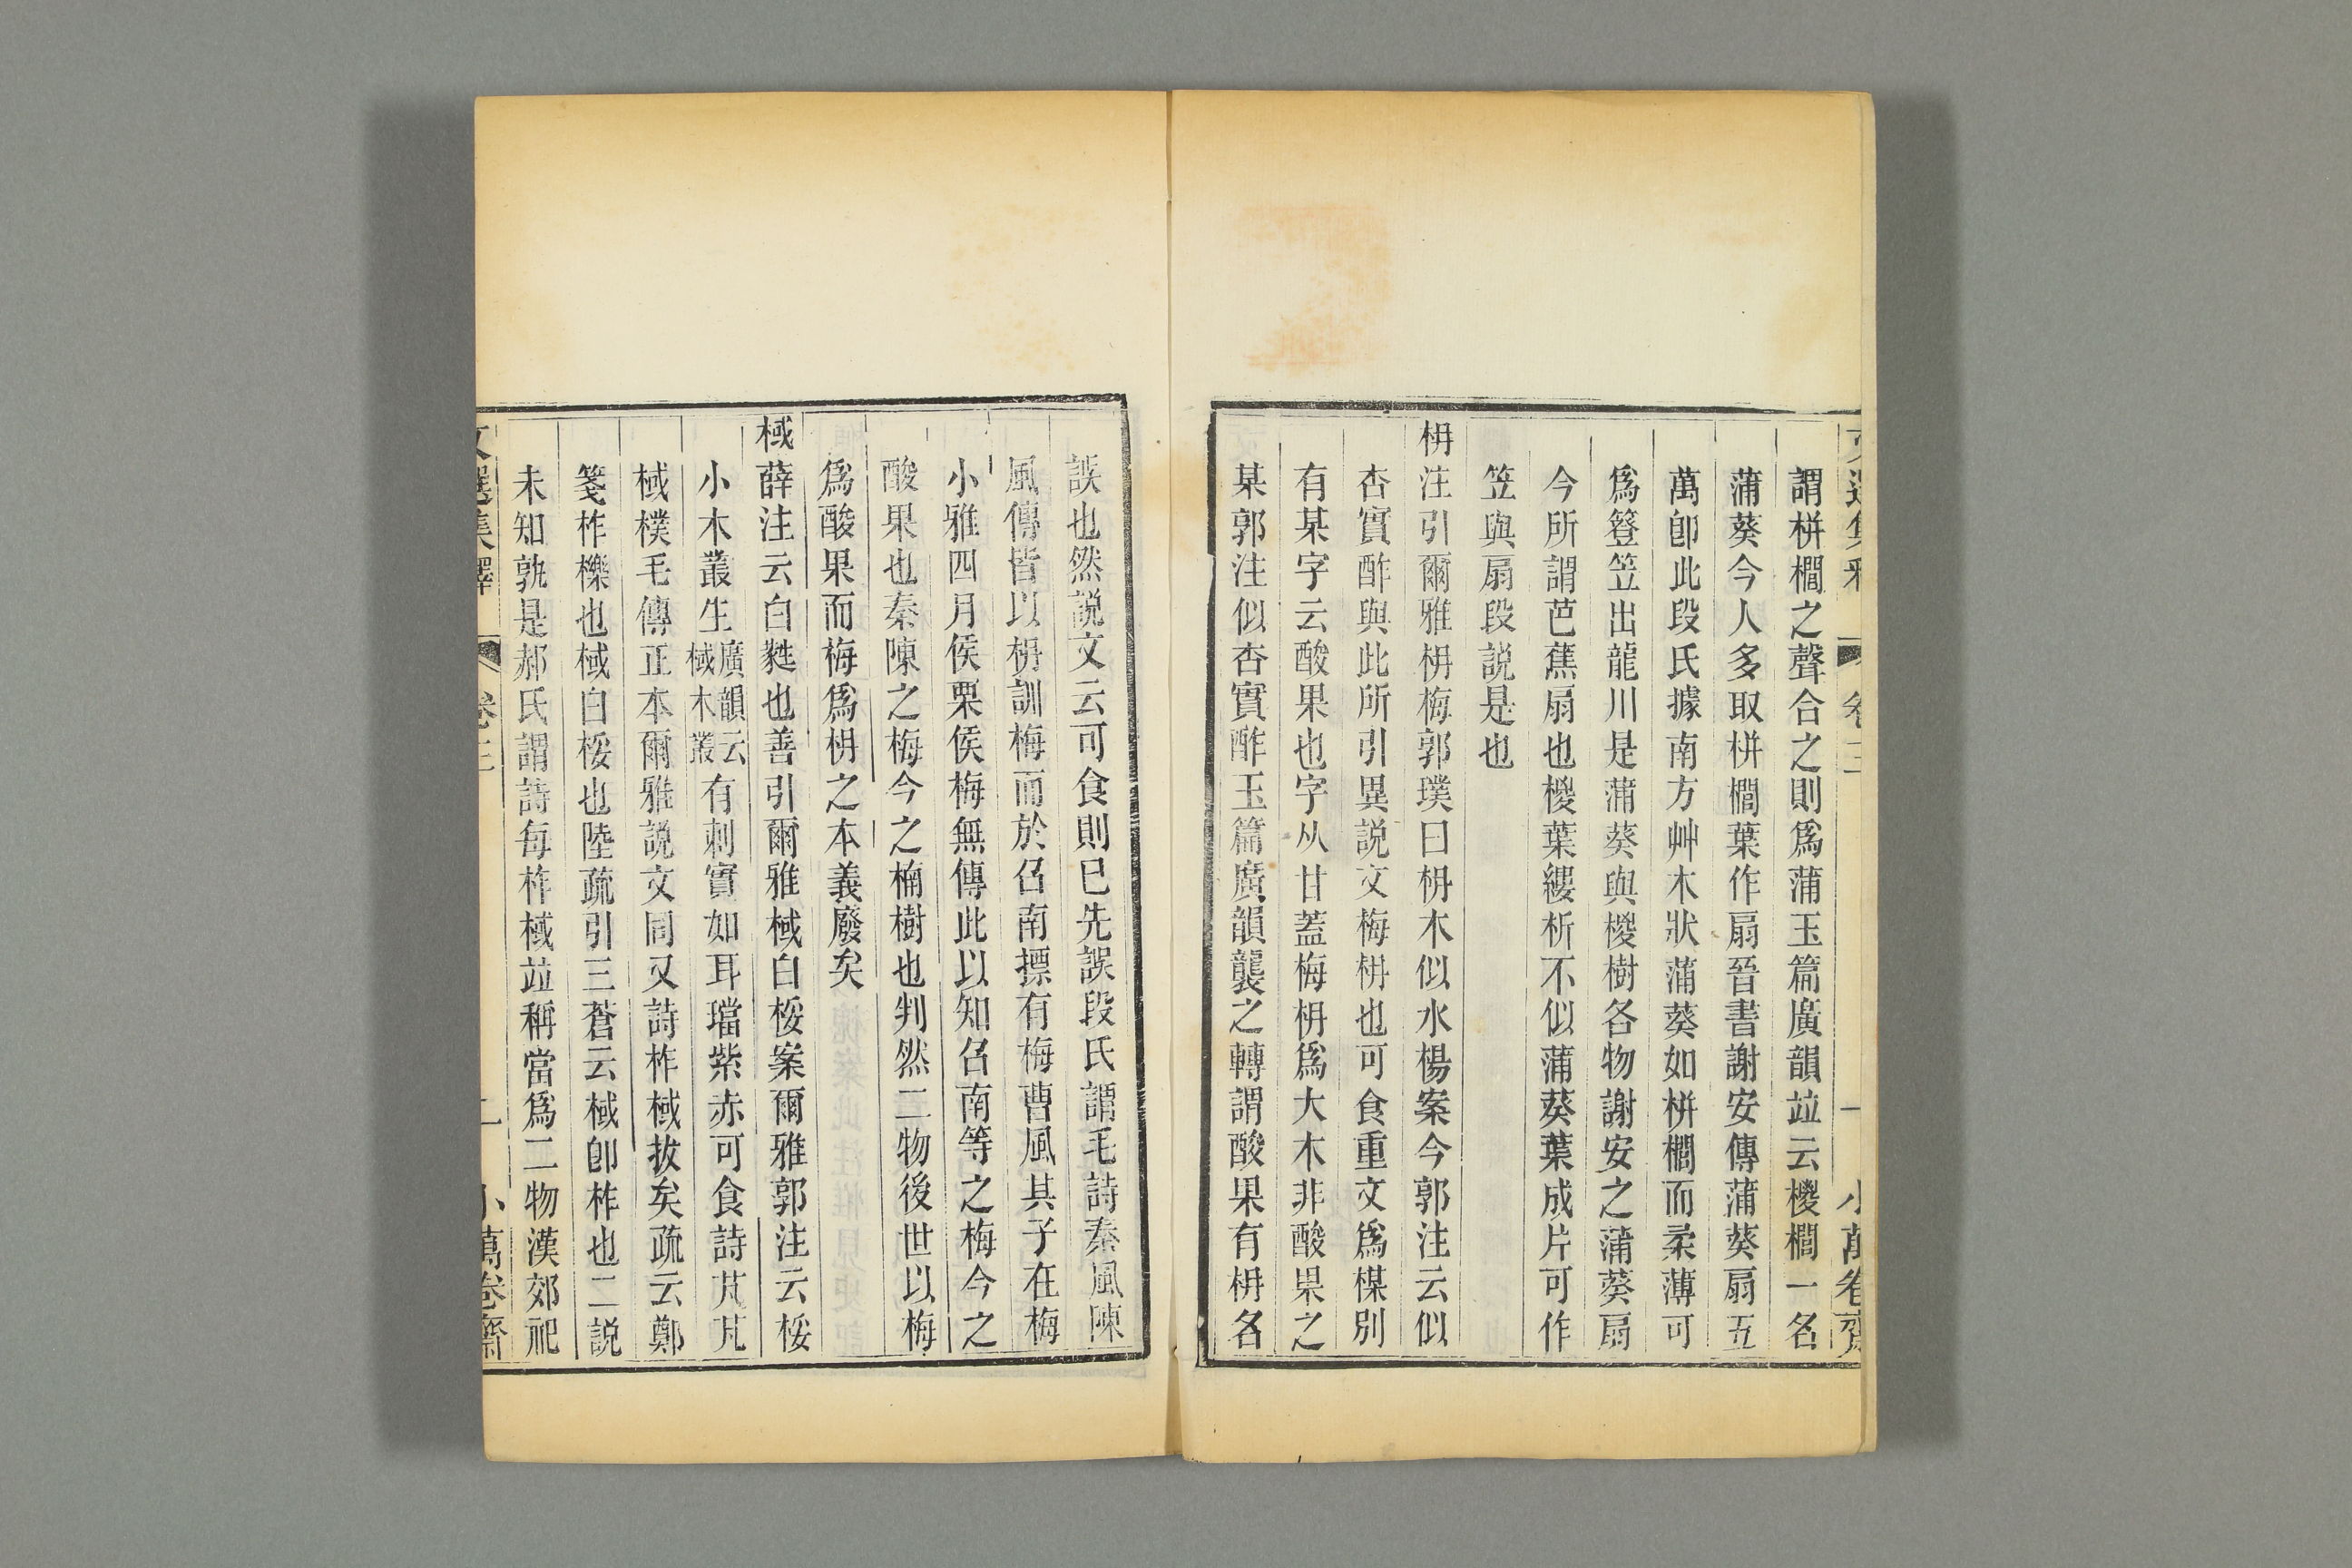 文選集釋 卷三 一 小萬卷齋
謂栟櫚之聲合之則爲蒲玉篇廣韻竝云椶櫚一名
蒲葵今人多取栟櫚葉作扇晉書謝安傳蒲葵扇五
萬卽此段氏據南方艸木狀蒲葵如栟櫚而柔薄可
爲簦笠出龍川是蒲葵與椶樹各物謝安之蒲葵扇
今所謂芭蕉扇也椶葉縷析不似蒲葵葉成片可作
笠與扇段説是也
枏注引爾雅枏梅郭璞曰枏木似水楊案今郭注云似
杏實酢與此所引異説文梅枏也可食重文爲楳別
有某字云酸果也字从甘蓋梅枏爲大木非酸果之
某郭注似杏實酢玉篇廣韻襲之轉謂酸果有枏名
誤也然説文云可食則已先誤段氏謂毛詩秦風陳
風傳皆以枏訓梅而於召南摽有梅曹風其子在梅
小雅四月侯栗侯梅無傳此以知召南等之梅今之
酸果也秦陳之梅今之楠樹也判然二物後世以梅
爲酸果而梅爲枏之本義廢矣
棫薛注云白蕤也善引爾雅棫白桵案爾雅郭注云桵
小木叢生廣韻云棫木叢有刺實如耳璫紫赤可食詩芃芃
棫樸毛傳正本爾雅説文同又詩柞棫拔矣疏云鄭
箋柞櫟也棫白桵也陸疏引三蒼云棫卽柞也二説
未知孰是郝氏謂詩每柞棫竝稱當爲二物漢郊祀
文選集釋 卷三 二 小萬卷齋